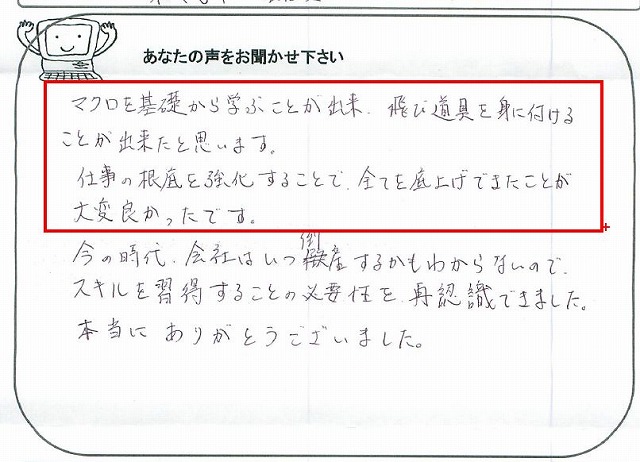 あなたの声をお聞かせ下さい
マクロを基礎から学ぶことが出来、飛び道具を身に付ける
ことが出来たと思います。
仕事の根底を強化することで、全てを底上げできたことが
大変良かったです。
今の時代、会社はいつ倒産するかもわからないので、
スキルを習得することの必要性を再認識できました。
本当にありがとうございました。